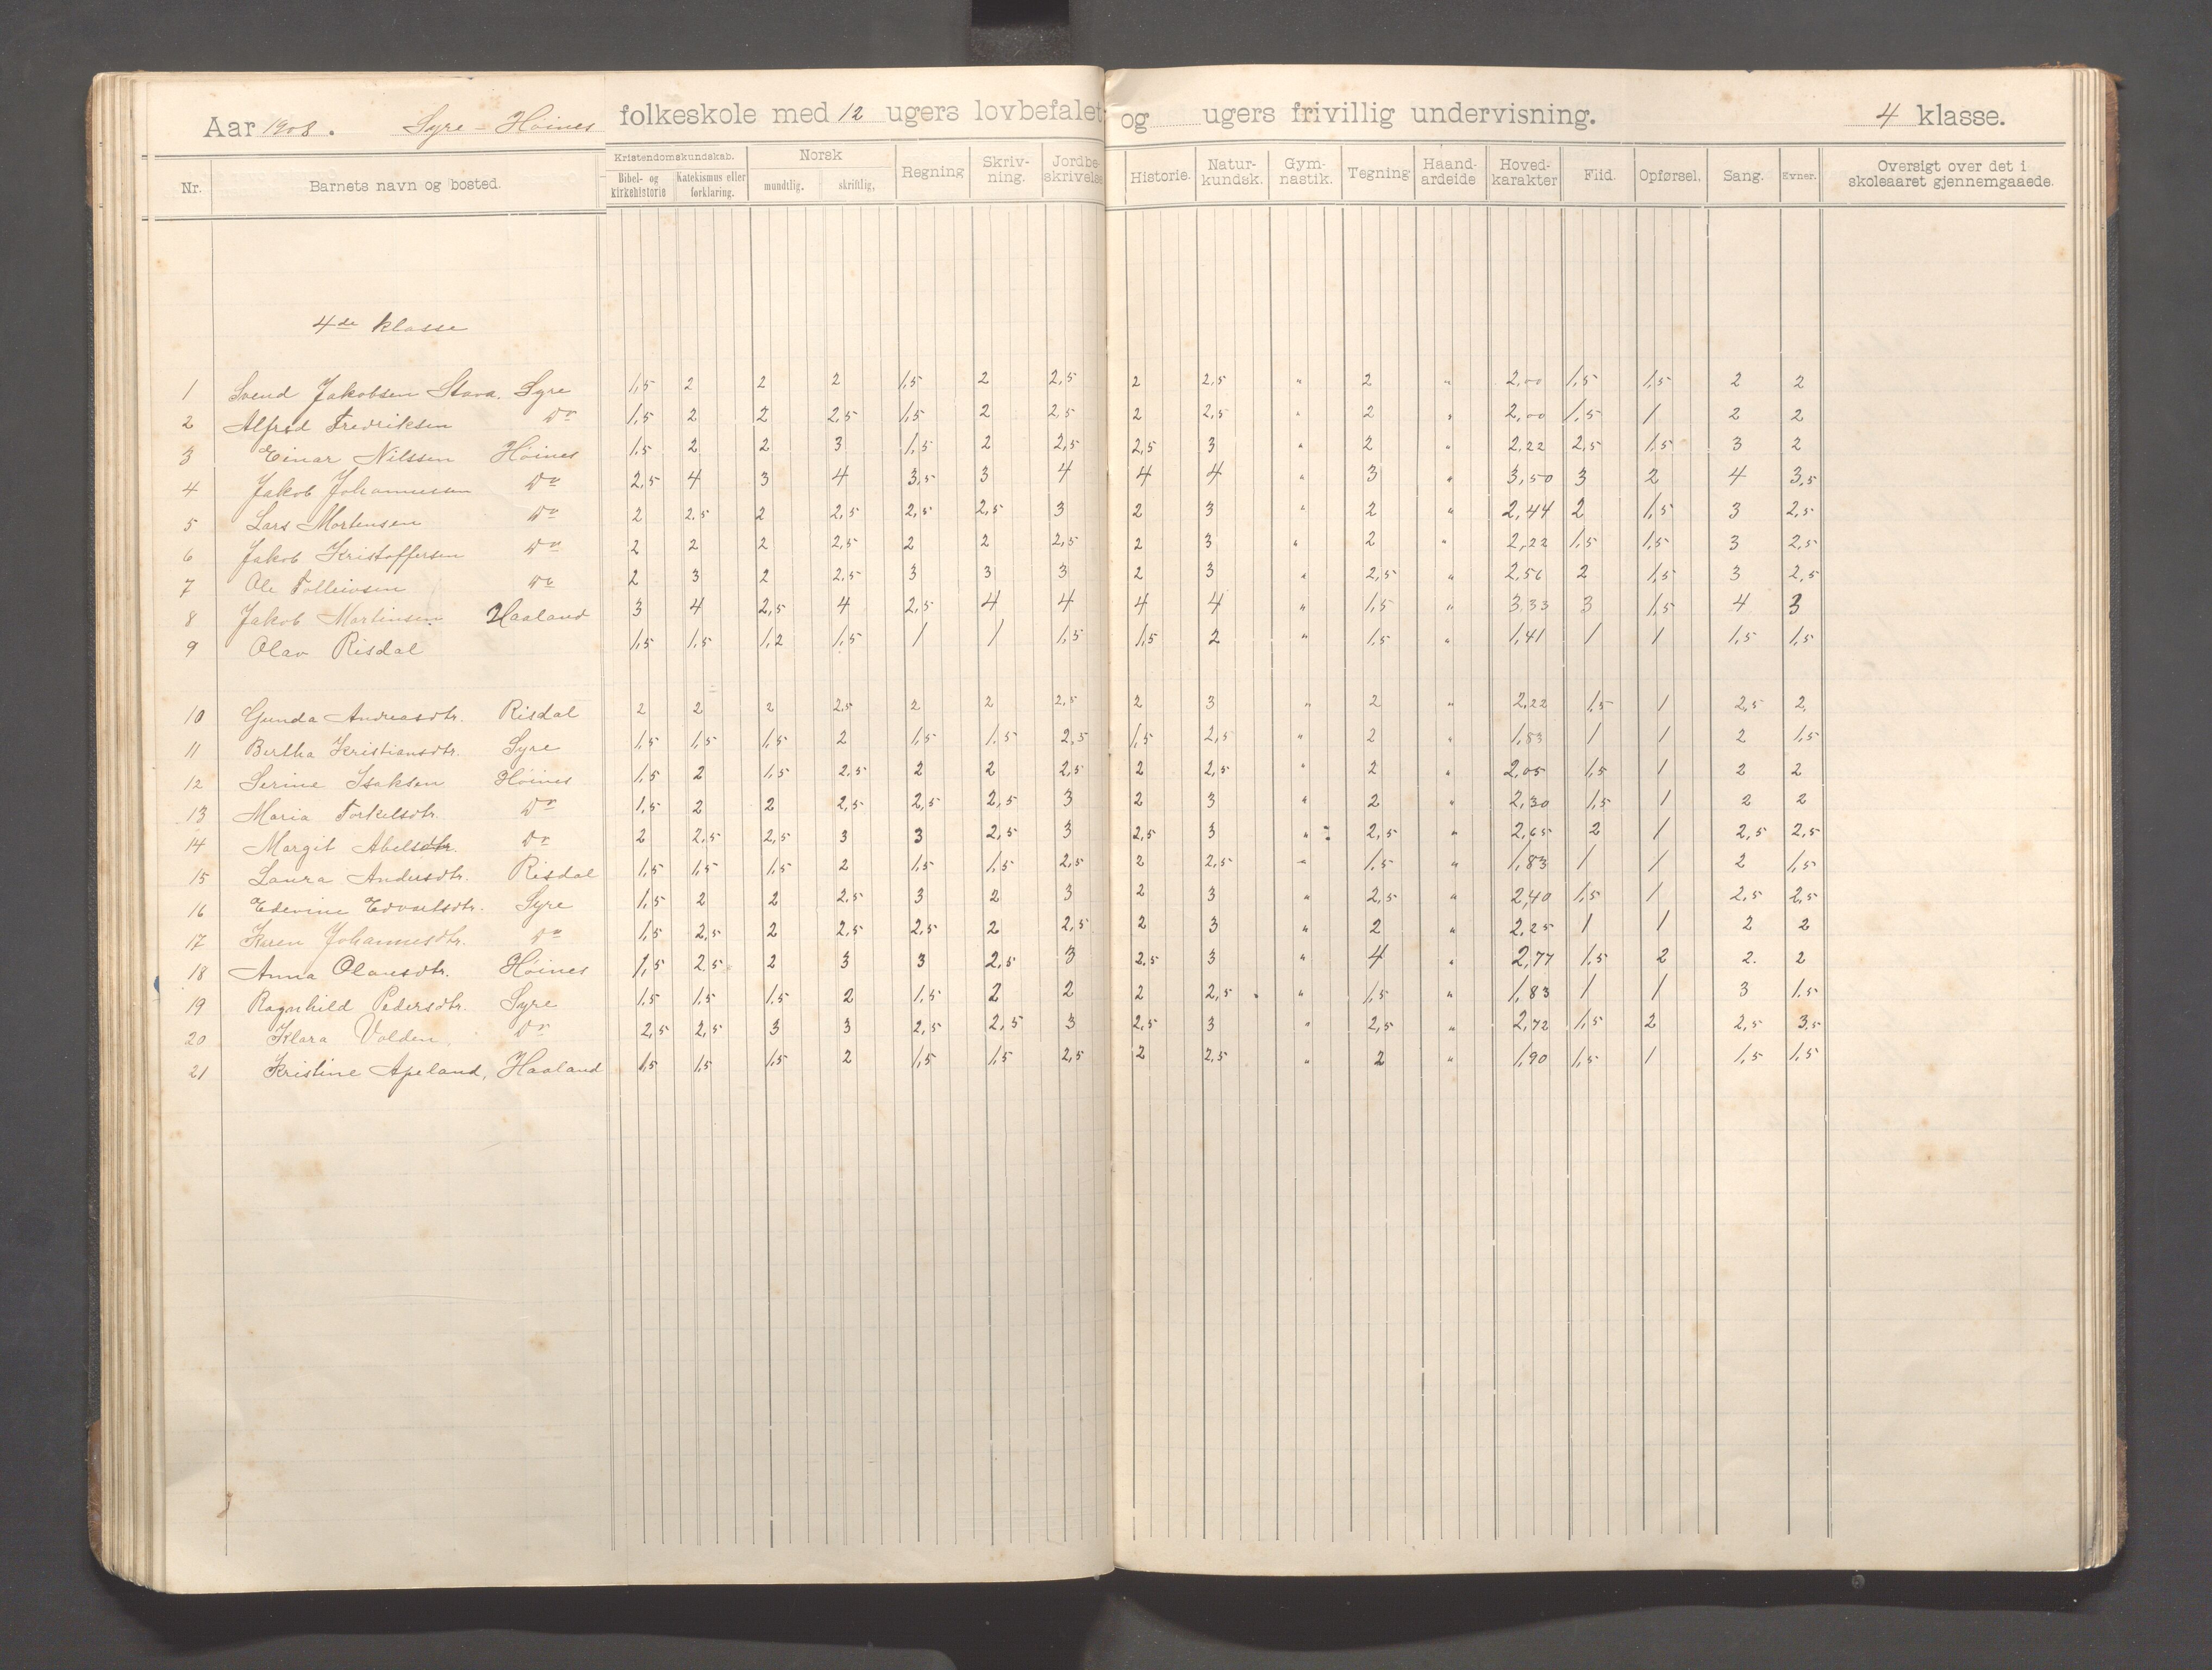 Aar 1908. Syre - Höines folkeskole med 12 ugers lovbefalet og ugers frivillig undervisning. 4 klasse.
Nr. Barnets navn og bosted. Kristendomskundskab. Bibel- og kirkehistorie Katekismus eller forklaring. Norsk mundtlig. skriftlig, Regning Skriv-ning. Jordbe-skrivelse Historie. Natur-kundsk. Gym-nastik. Tegning Haand-ardeide Hoved-karakter Flid. Opførsel. Sang. Evner. Oversigt over det i skoleaaret gjennemgaaede.
4de klasse
1 Svend Jakobsen Stava. Syre 1,5 2 2 2 1,5 2 2,5 2 2,5 " 2 " 2,00 1,5 1,5 2 2
2 Alfred Fredriksen Do 1,5 2 2 2,5 1,5 2 2,5 2 2,5 " 2 " 2,00 1,5 1 2 2
3 Einar Nilssen Höines 1,5 2 2 3 1,5 2 2,5 2,5 3 " 2 " 2,22 2,5 1,5 3 2
4 Jakob Johannessen Do 2,5 4 3 4 3,5 3 4 4 4 " 3 " 3,50 3 2 4 3,5
5 Lars Mortensen Do 2 2,5 2 2,5 2,5 2,5 3 2 3 " 2 " 2,44 2 1,5 3 2,5
6 Jakob Kristoffersen Do 2 2 2 2,5 2 2 2,5 2 3 " 2 " 2,22 1,5 1,5 3 2,5
7 Ole Tolleivsen Do 2 3 2 2,5 3 3 3 2 3 " 2,5 " 2,56 2 1,5 3 2,5
8 Jakob Martinsen. Haaland 3 4 2,5 4 2,5 4 4 4 4 " 1,5 " 3,33 3 1,5 4 3
9 Olav Risdal 1,5 1,5 1,2 1,5 1 1 1,5 1,5 2 " 1,5 " 1,41 1 1 1,5 1,5
10 Gunda Andreasdtr. Risdal 2 2 2 2,5 2 2 2,5 2 3 " 2 " 2,22 1,5 1 2,5 2,
11 Bertha Kristiansdtr. Syre 1,5 1,5 1,5 2 1,5 1,5 2,5 1,5 2,5 " 2 " 1,83 1 1 2 1,5
12 Serine Isaksen Höines 1,5 2 1,5 2,5 2 2 2,5 2 2,5 " 2 " 2,05 1,5 1 2 2
13 Maria Torkelsdtr. Do 1,5 2 2 2,5 2,5 2,5 3 2 3 " 2 " 2,30 1,5 1 2 2
14 Margit Abelsdtr. Do 2 2,5 2,5 3 3 2,5 3 2,5 3 " 2,5 " 2,65 2 1 2,5 2,5
15 Laura Andersdtr. Risdal 1,5 1,5 1,5 2 1,5 1,5 2,5 2 2,5 " 1,5 " 1,83 1 1 2 1,5
16 Edevine Edvartsdtr. Syre 1,5 2 2 2,5 3 2 3 2 3 " 2,5 " 2,40 1,5 1 2,5 2,5
17 Karen Johannesdtr. Do 1,5 2,5 2 2,5 2,5 2 2,5 2 3 " 2 " 2,25 1 1 2 2
18 Anna Olausdtr. Höines 1,5 2,5 2 3 3 2,5 3 2,5 3 " 4 " 2,77 1,5 2 2. 2
19 Ragnhild Pedersdtr. Syre 1,5 1,5 1,5 2 1,5 2 2 2 2,5 " 1,5 " 1,83 1 1 3 1,5
20 Klara Valden. Do 2,5 2,5 3 3 2,5 2,5 3 2,5 3 " 2,5 " 2,72 1,5 2 2,5 3,5
21 Kristine Apeland, Haaland 1,5 1,5 1,5 2 1,5 1,5 2,5 2 2,5 " 2 " 1,90 1,5 1 1,5 1,5